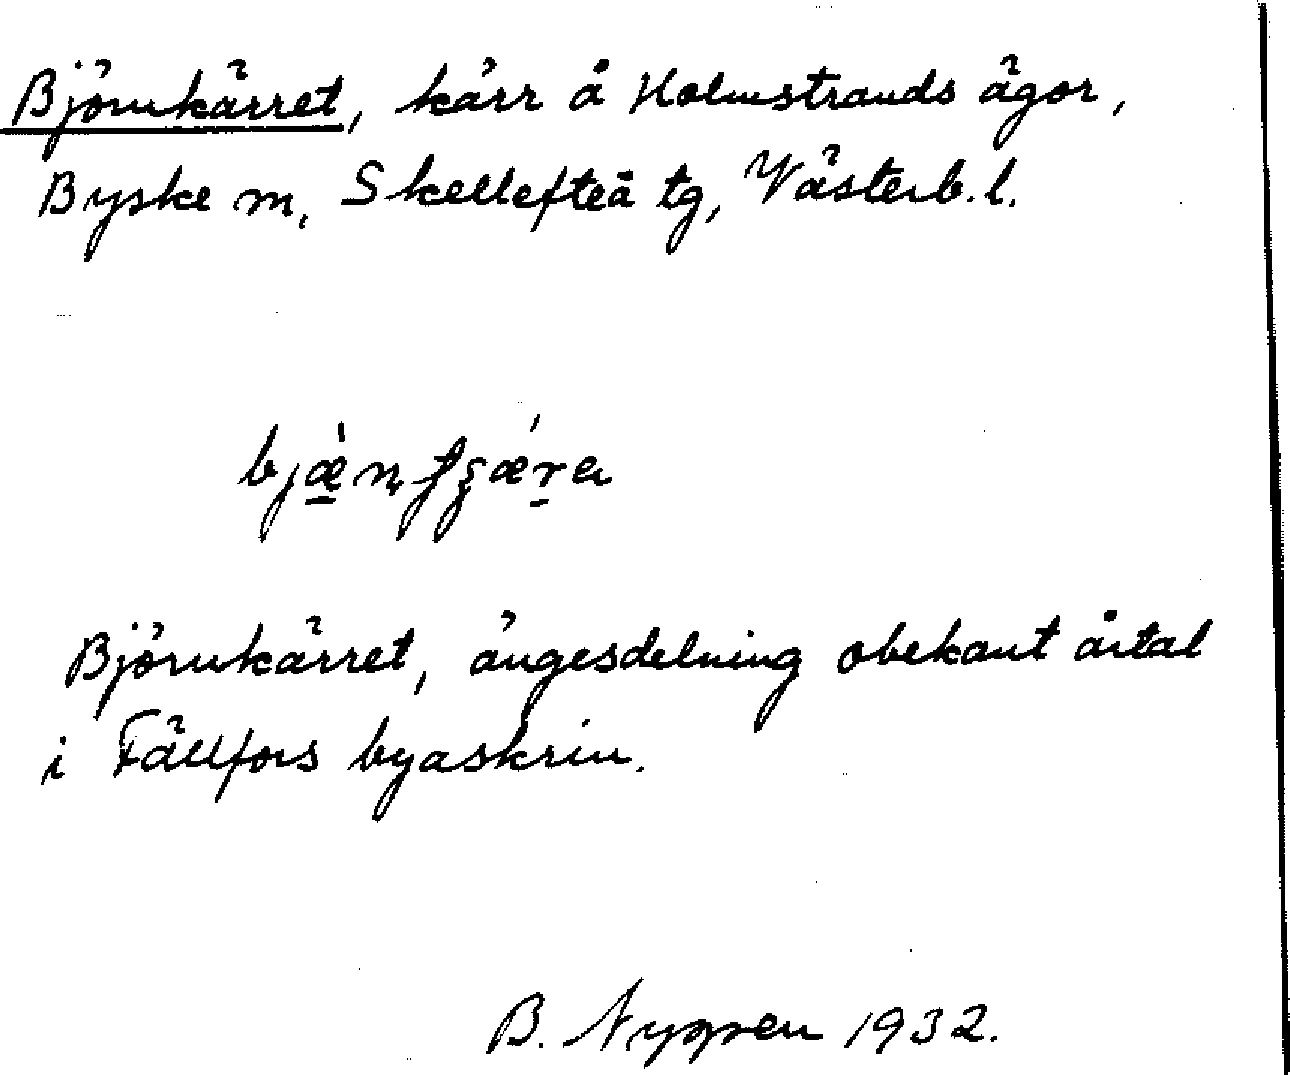 Björnkärret, kärr å Holmstrands ägor,
Byske sn, Skellefteå tg, Västerb. l.
Björnkärret, ängesdelning obekant årtal
i Fällfors byaskrin.
B. Nygren 1932.